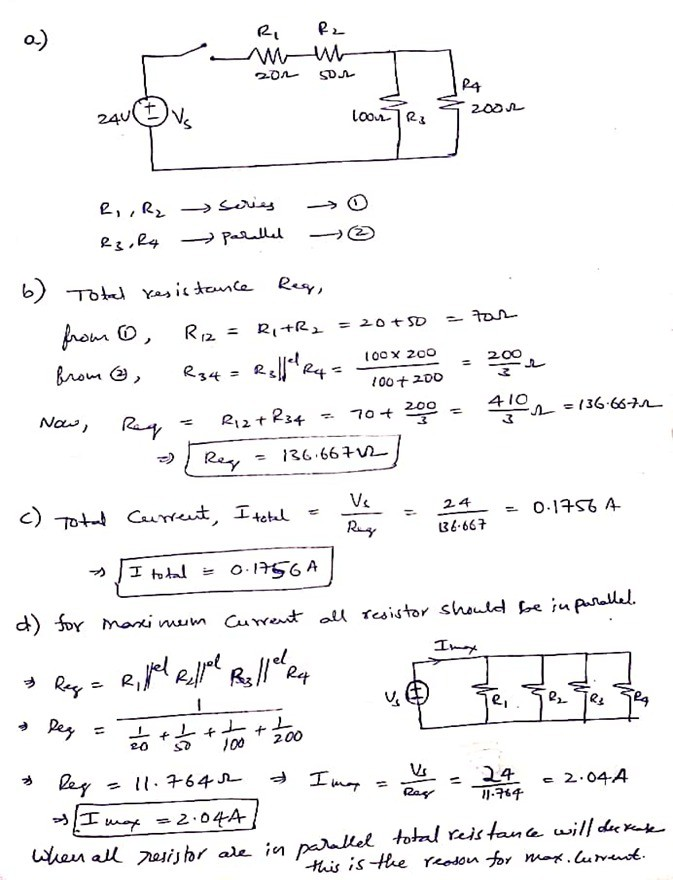 a)
R1 R2
20Ω 50Ω
24V Vs
100Ω R3
R4
200Ω
R1, R2 → Series → ①
R3, R4 → Parallel → ②
b) Total resistance Req,
from ①, R12 = R1+R2 = 20+50 = 70Ω
From ②, R34 = R3||el R4 = 100 x 200 / 100+200 = 200/3 Ω
Now, Req = R12+R34 = 70 + 200/3 = 410/3 Ω = 136.667Ω
⇒ Req = 136.667Ω
c) Total Current, I total = Vs/Req = 24/136.667 = 0.1756 A
⇒ I total = 0.1756 A
d) for maximum Current all resistor should be in parallel.
⇒ Req = R1||el R2||el R3||el R4
Imax
Vs R1 R2 R3 R4
⇒ Req = 1 / 1/20 + 1/50 + 1/100 + 1/200
⇒ Req = 11.764Ω ⇒ Imax = Vs/Req = 24/11.764 = 2.04A
⇒ Imax = 2.04A
When all resistor are in parallel total reistance will decrease
this is the reason for max. Current.